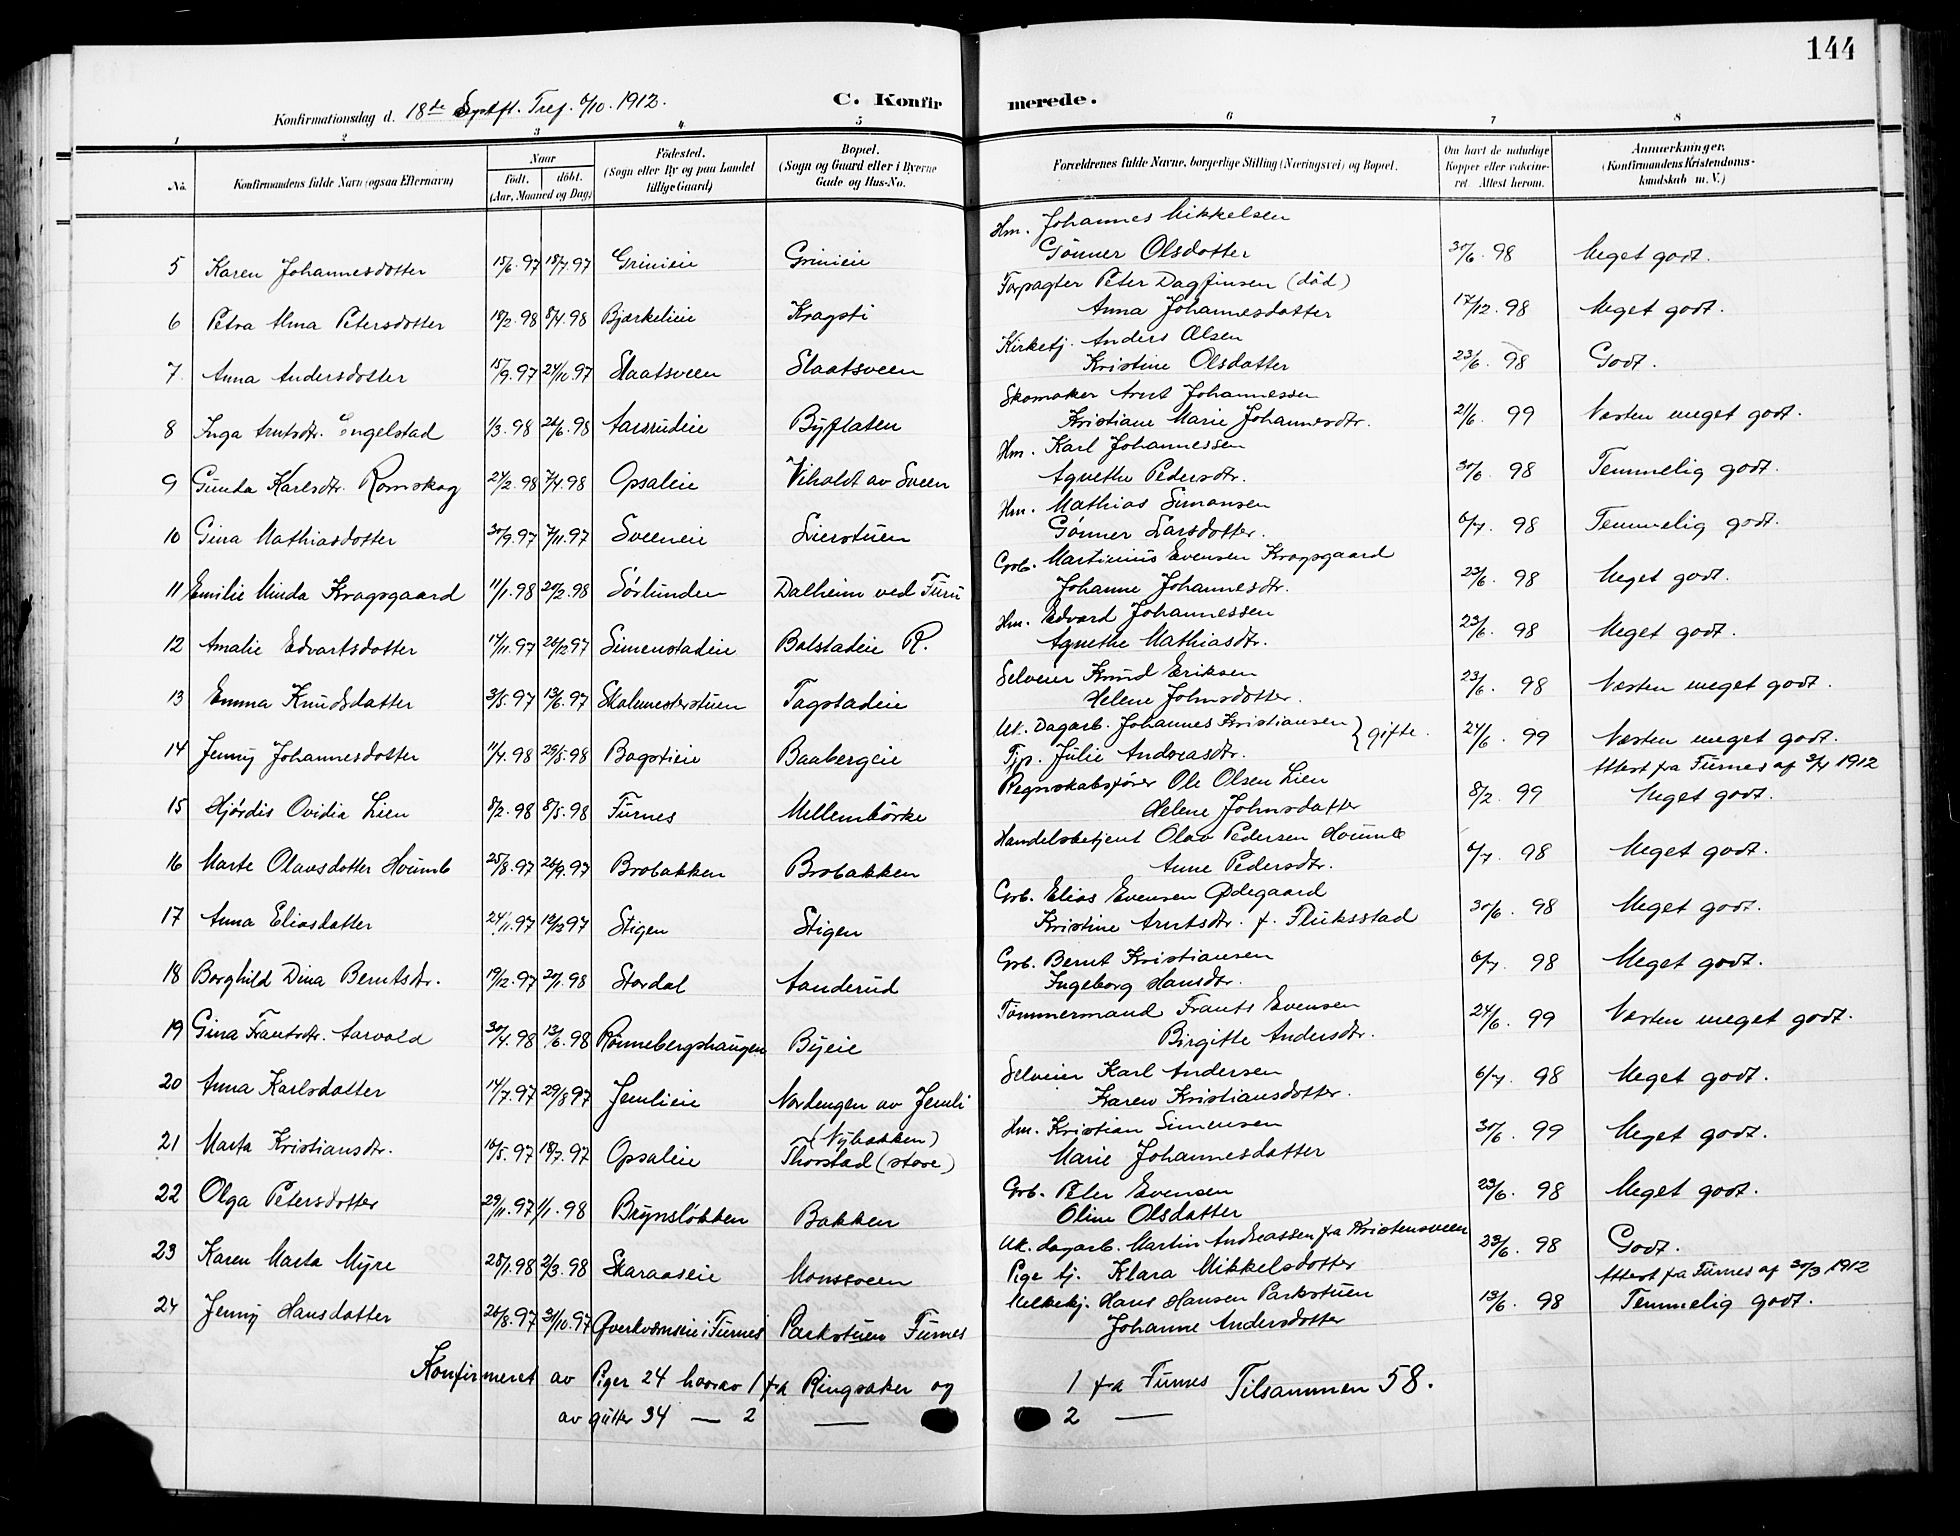 144
Konfirmationsdag d. 18de S. eft. Tref. 6/10. 1912.
C. Konfirmerede.
1 2 3 4 5 6 7 8
No. Konfirmandens fulde Navn (ogsaa Efternavn) Naar født. døbt. (Aar, Maaned og Dag) Fødested. (Sogn eller By og paa Landet tillige Gaard) Bopæl. (Sogn og Gaard eller i Byerne Gade og Hus-No. Forældrenes fulde Navne, borgerlige Stilling (Næringsvei) og Bopæl. Om havt de naturlige Kopper eller vakcineret Attest herom. Anmærkninger. (Konfirmandens Kristendomskundskab m. V.)
Hm. Johannes Mikkelsen
5 Karen Johannesdotter 15/6. 97 18/7. 97 Grinieie Grinieie Gønner Olsdotter 30/6. 98 Meget godt.
Forpagter Peter Dagfinsen (død)
6 Petra Alma Petersdotter 18/2. 98 8/4. 98 Bjærkelieie Kragsti Anna Johannesdatter 17/12. 98 Meget godt.
Kirketj. Anders Olsen
7. Anna Andersdotter 15/9. 97 21/11. 97 Slaatsveen Slaatsveen Kristine Olsdatter 23/6. 98 Godt.
Skomaker Arnt Johannessen
8 Inga Arntsdtr. Engelstad 1/3. 98 26/6. 98 Aarsrudeie Byflaten Kristiane Marie Johannesdtr. 21/6. 99 Næsten meget godt.
Hm. Karl Johannessen
9 Gunda Karlsdtr. Romskog 27/2. 98 7/4. 98 Opsaleie Viholdt av Sveen Agnethe Pedersdtr. 30/6. 98 Temmelig godt.
Hm. Mathias Simonsen
10 Gina Mathiasdotter 30/9. 97 7/11. 97 Sveeneie Lierstuen Gønner Larsdotter. 6/7. 98 Temmelig godt.
Grb. Martinius Evensen Kragsgaard
11 Emilie Minda Kragsgaard 11/1. 98 20/2. 98 Sørlunden Dalheim ved Furu Johanne Johannesdtr. 23/6. 98 Meget godt.
Hm. Edvard Johannessen
12 Amalie Edvartsdotter 17/11. 97 26/12 97 Simenstadeie Bolstadeie R. Agnethe Mathiasdtr. 23/6. 98 Meget godt.
Selveier Knud Eriksen
13 Emma Knudsdatter 3/5. 97 13/6. 97 Skolemesterstuen Tagstadeie Helene Johnsdotter. 23/6. 98 Næsten meget godt.
Uk. Dagarb. Johannes Kristiansen } gifte.
14 Jenny Johannesdotter 11/4. 98 29/5. 98 Bagstieie Baabergeie Tjp. Julie Andreasdtr. 24/6. 99 Næsten meget godt.
Regnskabsfører Ole Olsen Lien Attest fra Furnes af 3/4 1912
15 Hjørdis Ovidia Lien 8/2. 98 8/5. 98 Furnes Mellembørke Helene Johnsdatter 8/2. 99 Meget godt.
Handelsbetjent Olav Pedersen Houmb
16 Marte Olavsdotter Houmb 25/8. 97 26/9. 97 Brobakken Brobakken Anne Pedersdtr. 6/7. 98 Meget godt.
Grb. Elias Evensen Ødegaard
17 Anna Eliasdatter 24/11. 97 19/12 97 Stigen Stigen Kristine Arntsdtr. f. Fluksstad 30/6. 98 Meget godt.
Grb. Bernt Kristiansen
18 Borghild Dina Berntsdtr. 19/12. 97 20/1. 98 Stordal Aanderud Ingeborg Hansdtr. 6/7. 98 Meget godt.
Tømmermand Frants Evensen
19 Gina Frantsdtr. Aarvold 30/4. 98 13/6. 98 Rønnebergshaugen Byeie Birgitte Andersdtr. 24/6. 99 Næsten meget godt.
Selveier Karl Andersen
20 Anna Karlsdatter 14/7. 97 29/8 97 Jemlieie Nordengen av Jemli Karen Kristiansdotter. 6/7. 98 Meget godt.
(Nybakken) Hm. Kristian Simensen
21 Marta Kristiansdtr. 16/5. 97 18/7. 97 Opsaleie Thorstad (store) Marie Johannesdatter 30/6. 99 Meget godt.
Grb. Peter Evensen
22 Olga Petersdotter 29/11. 97 1/1. 98 Brynsløkken Bakken Oline Olsdatter 23/6. 98 Meget godt.
Uk. dagarb. Martin Andreassen fra Kristensveen
23 Karen Marta Myre 28/1. 98 2/3. 98 Skaraaseie Monsveen Pige tj. Klara Mikkelsdotter 23/6. 98 Godt.
Melkekj. Hans Hansen Parkstuen Attest fra Furnes af 30/3 1912
24 Jenny Hansdatter 26/8. 97 31/10. 97 Qverkværneie i Furnes Parkstuen Furnes Johanne Andersdotter 13/6. 98 Temmelig godt.
Konfirmeret av Piger 24 hvorav 1 fra Ringsaker og 1 fra Furnes Tilsammen 58.
av gutter 34 — 2 — 2 —